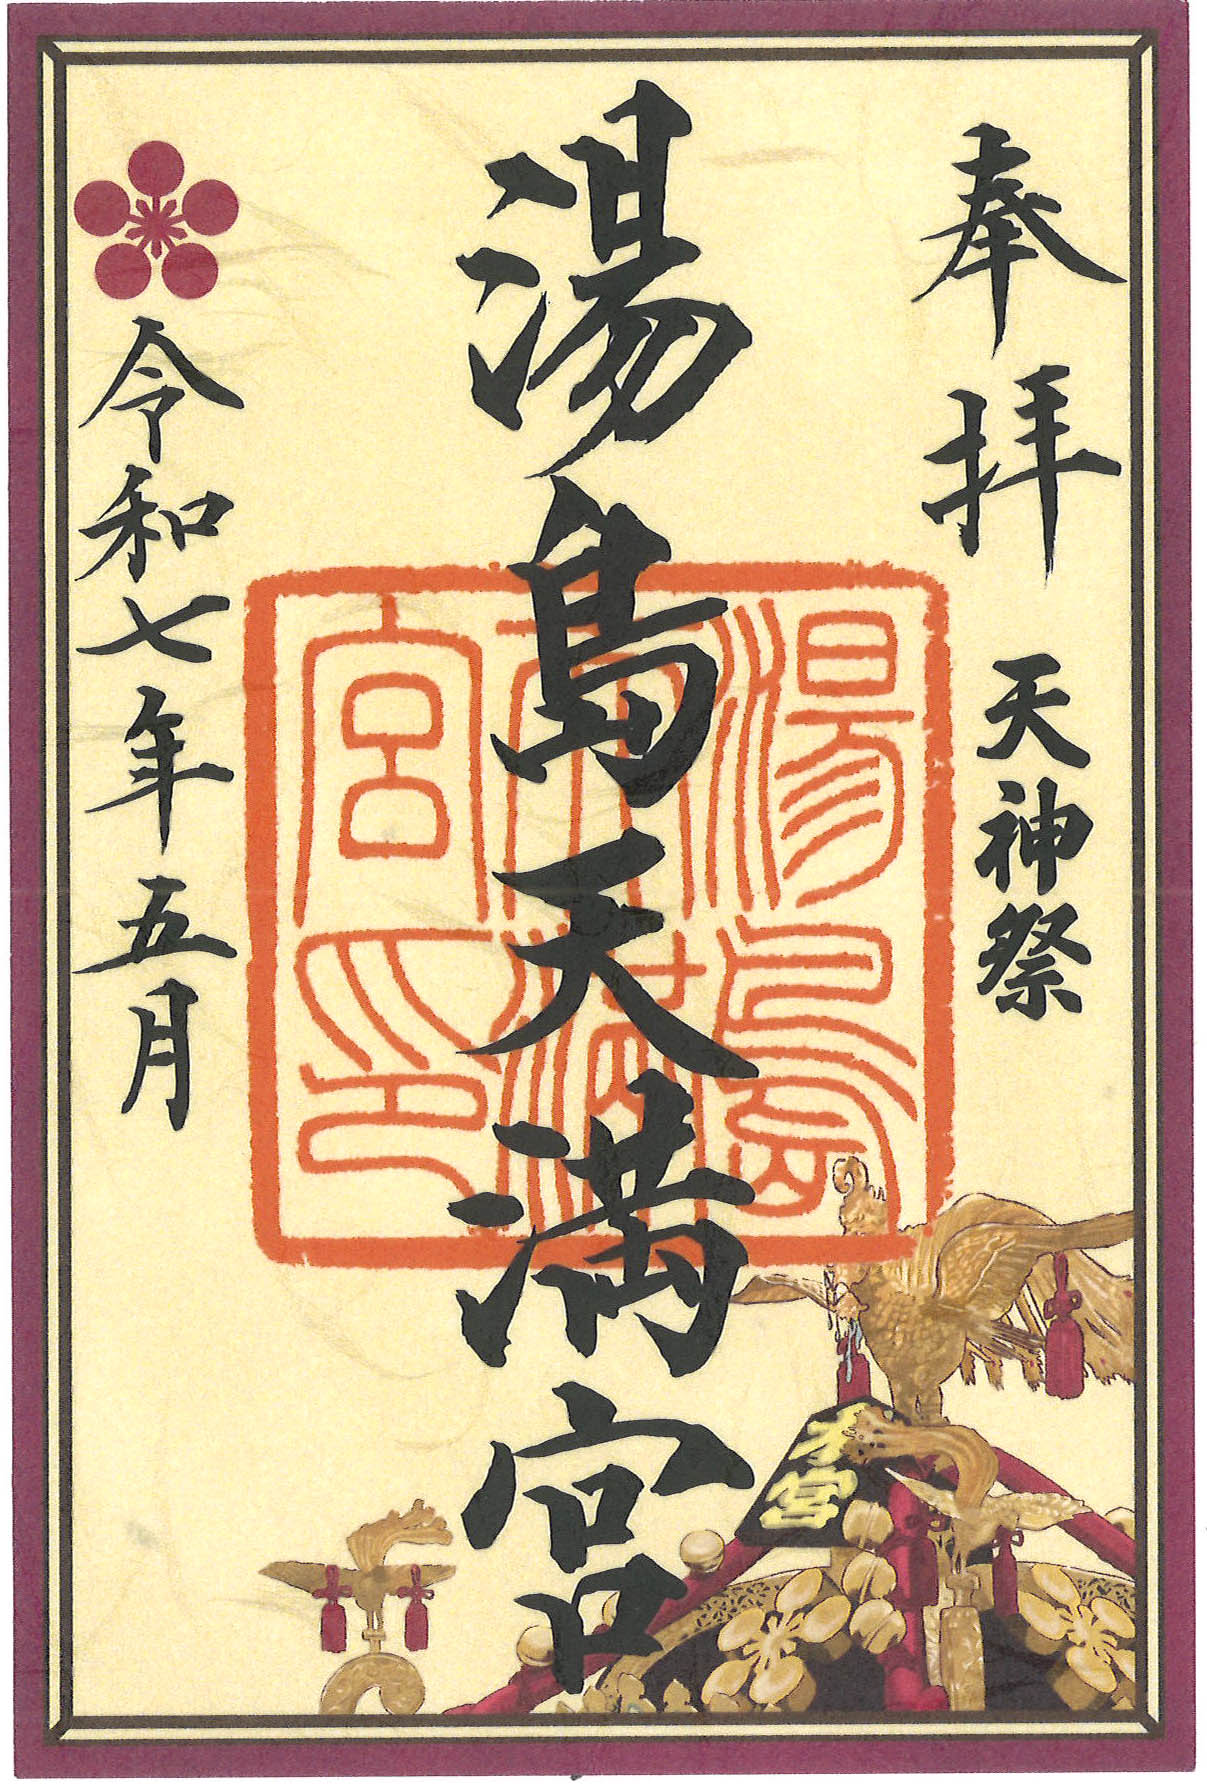 奉拝 天神祭
湯島天満宮
令和七年五月
湯島
天満
宮印
本宮